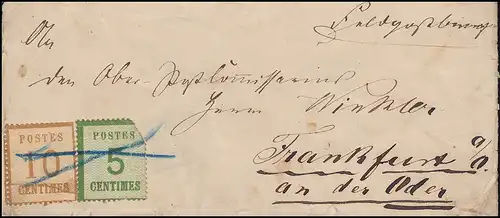 Feldpostbrief
An
den Ober-Postkommissarius
Herrn Winkler
Frankfurt a/O.
an der Oder
POSTES
10
CENTIMES
POSTES
5
CENTIMES